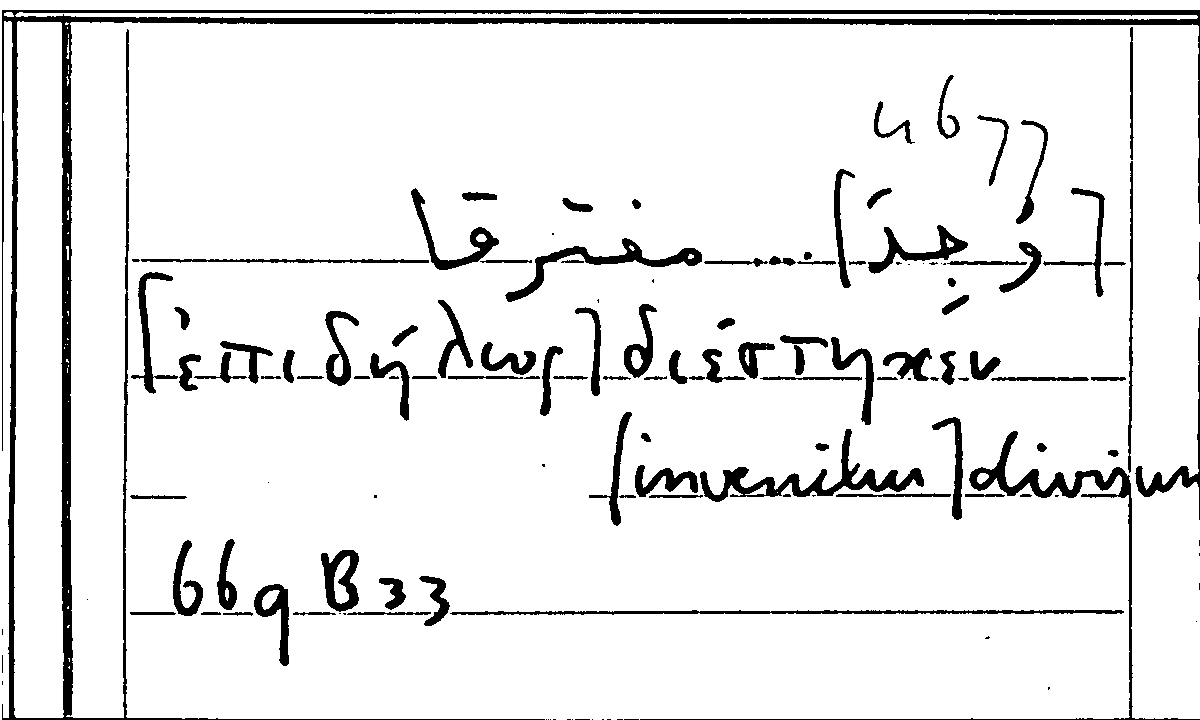 4677
[وُجدَ] ... مفترقا
[ἐπιδήλως] διέστηκεν
[invenitur] divisum
669 B 33